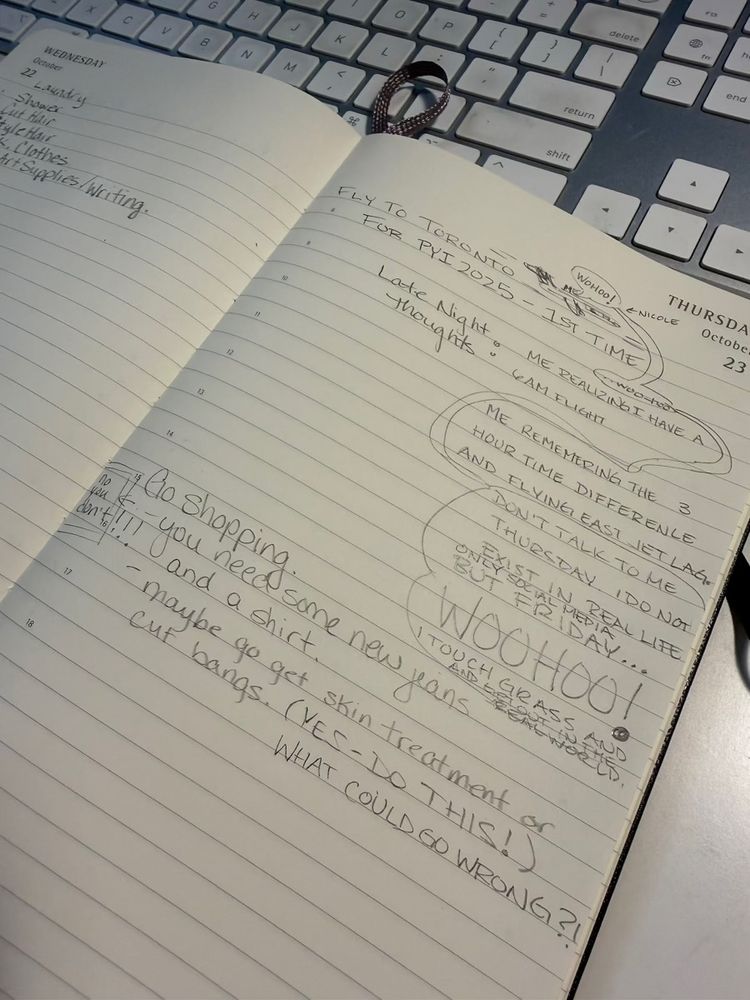 WEDNESDAY
October
22
Laundry
Shower
Cut Hair
Style Hair
Clothes
Art Supplies/Writing.
THURSDA
Octobe
23
FLY TO TORONTO
FOR PYI 2025 - 1ST TIME
WOHOO!
← NICOLE
Late Night :
Thoughts :
ME REALIZING I HAVE A
6AM FLIGHT
WOO-HOO
ME REMEMERING THE 3
HOUR TIME DIFFERENCE
AND FLYING EAST JET LAG.
DON'T TALK TO ME
THURSDAY I DO NOT
EXIST IN REAL LIFE
ONLY SOCIAL MEDIA
BUT FRIDAY...
WOOHOO!
I TOUCH GRASS AND
AND
IN THE
REAL WORLD.
no
you
don't!!!
Go shopping.
- you need some new jeans
and a shirt.
- maybe go get skin treatment or
cut bangs. (YES - DO THIS!)
WHAT COULD GO WRONG?!
8
9
10
11
12
13
14
15
16
17
18
C
V
B
N
M
G
H
J
K
L
I
O
P
delete
return
shift
fn
end